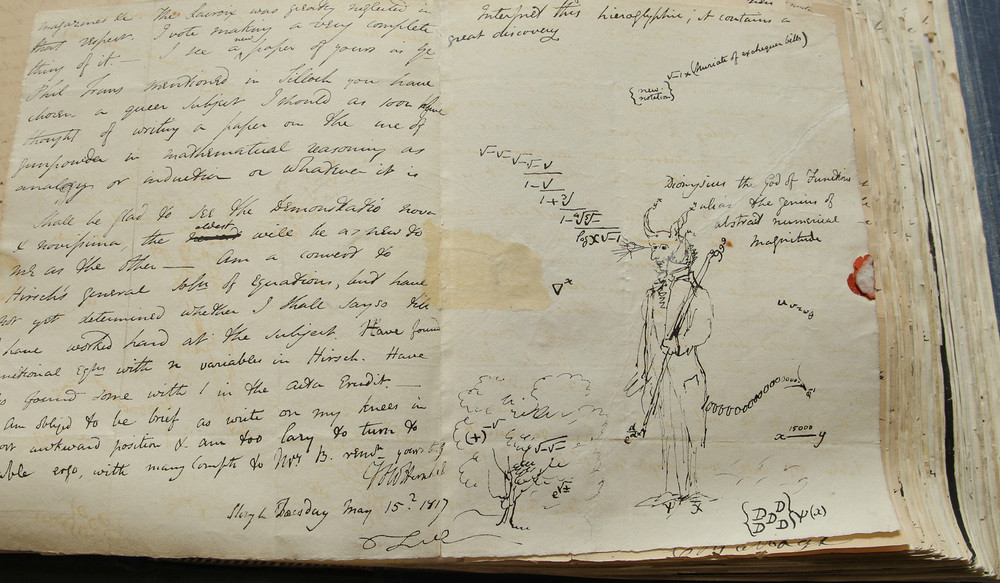 magazines &c The Lacroix was greatly neglected in
that respect. I vote making a very complete
thing of it — I see a new paper of yours as ye
Phil Trans mentioned in Tilloch you have
chosen a queer subject I should as soon have
thought of writing a paper on the use of
gunpowder in mathematical reasoning as
analogy or induction or whatever it is
Shall be glad to see the Demonstratio nova
& novissima, the oldest will be as new to
me as the other — am a convert to
Hirsch's general Soln of Equations, but have
not yet determined whether I shall say so till
I have worked hard at the subject. Have found
Eqns with n variables in Hirsch. Have
found some with 1 in the Acta Erudit. —
am oblig'd to be brief as write on my knees in
awkward position & am too lazy to turn to
table ergo, with many Compts to Mrs B. yours
JFW Herschel
Slough Tuesday May 15. 1817
Interpret this hieroglyphic, it contains a
great discovery
√-1 x (Muriate of exchequer bills)
{new notation}
√-√-√-√-√
1-√
1+√
1-√√
log x √-1
Dionysius the God of Functions
alias the genius of
abstract numerical
magnitude
∇x
u v w y
(+)-√
√-√-
e√±
15000
x — y
ψ x
{D D D D D} ψ(x)